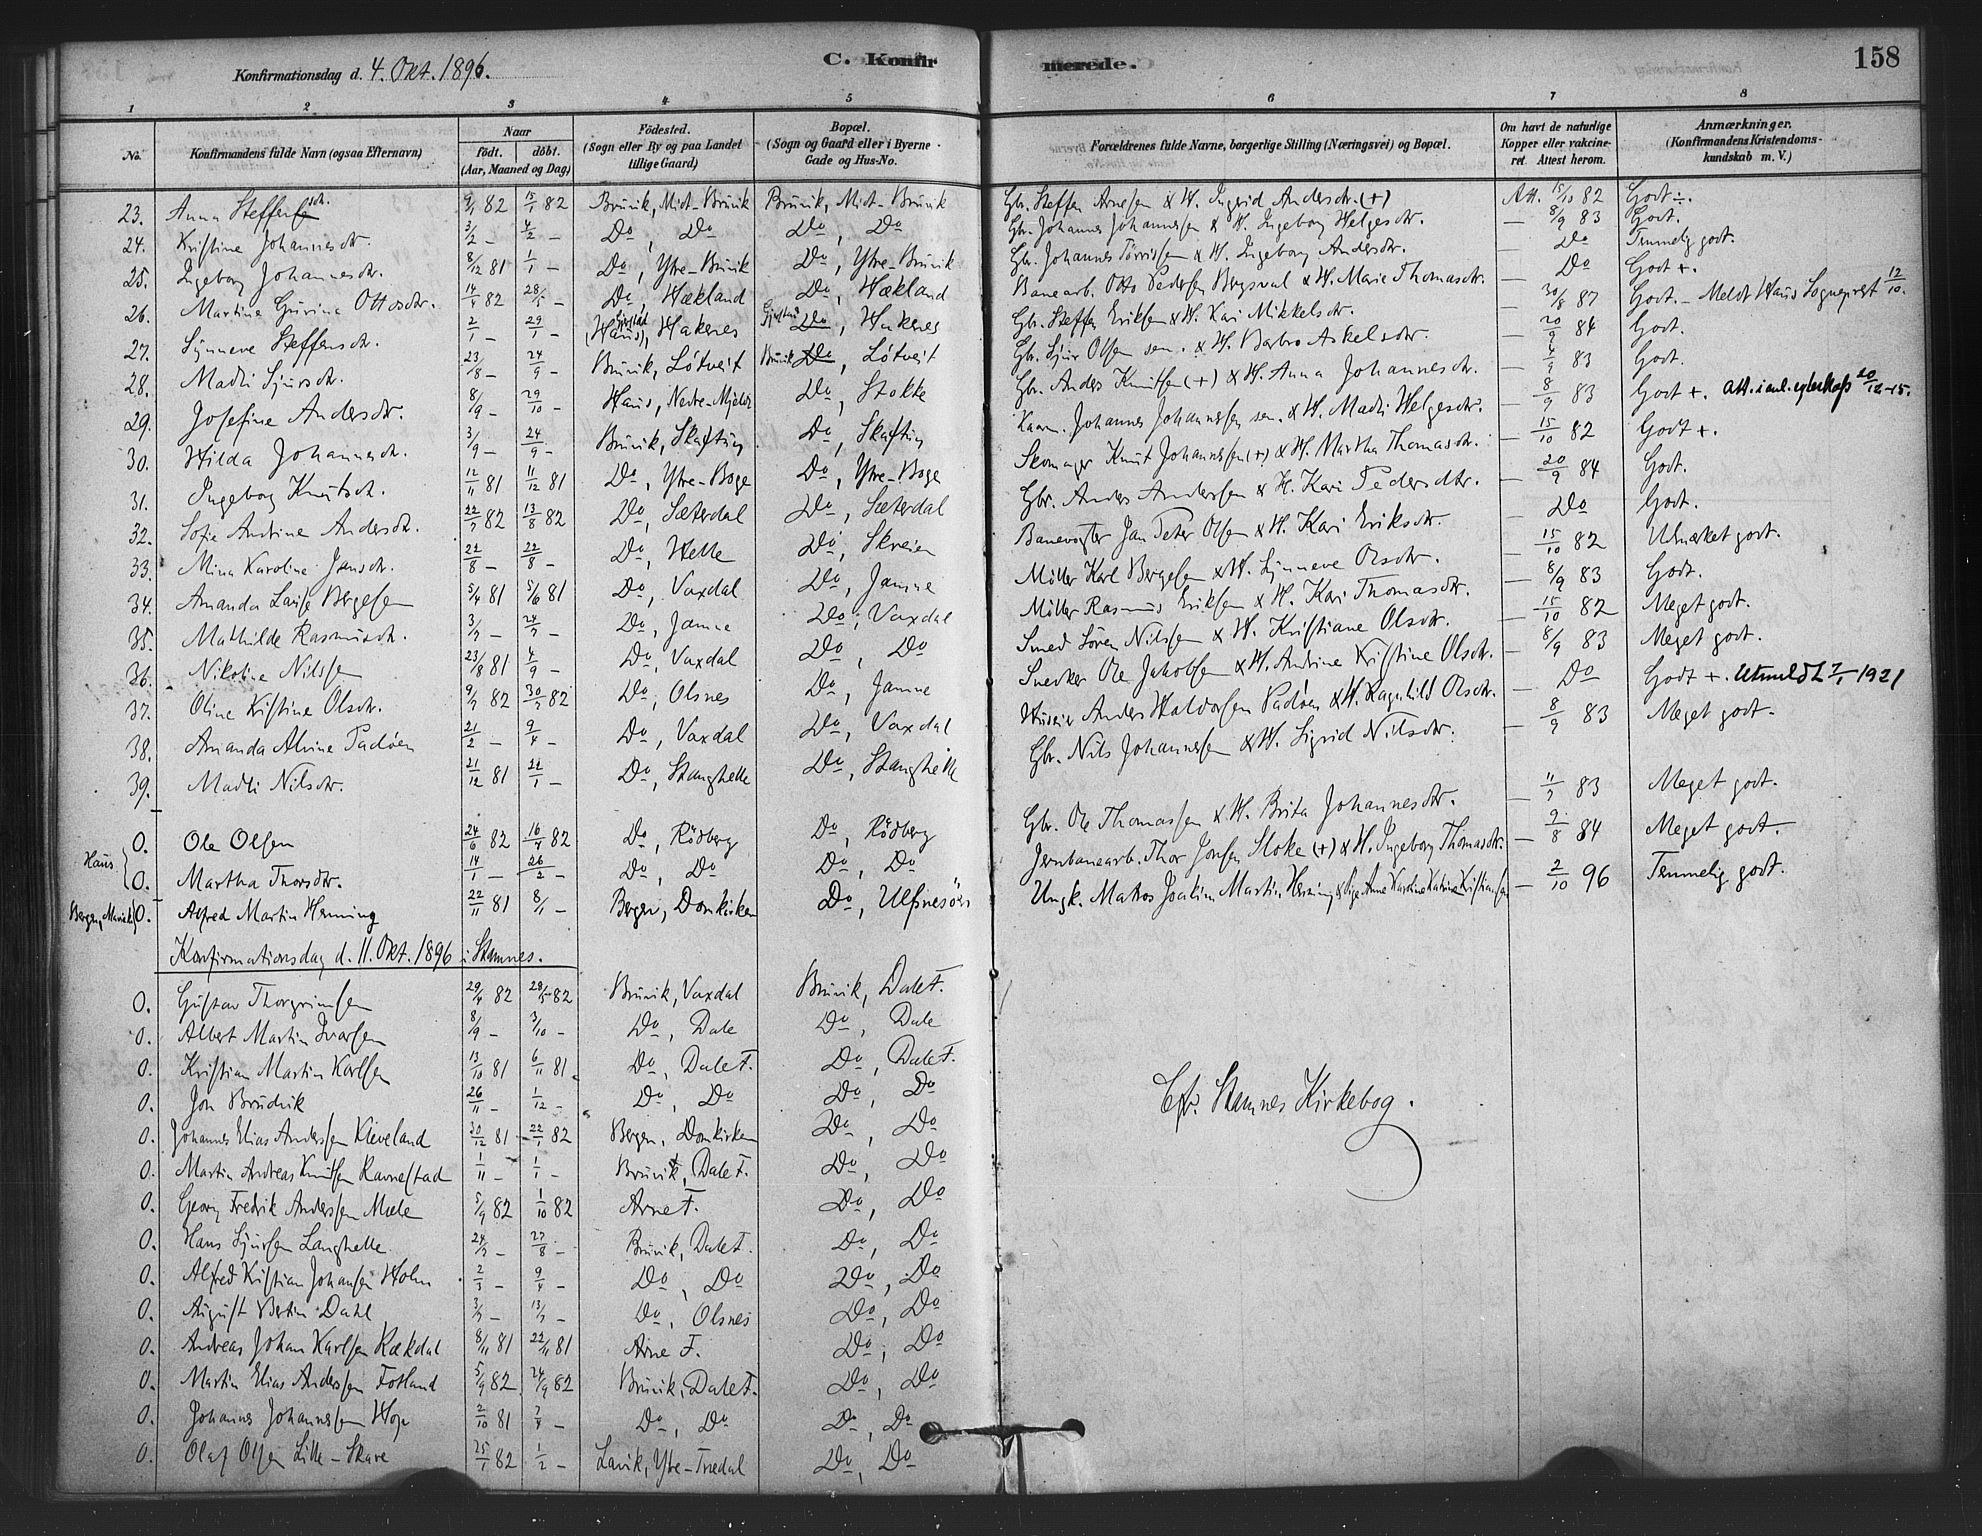 Konfirmationsdag d. 4. Okt. 1896.
C. Konfirmerede.
158
1 2 3 4 5 6 7 8
No. Konfirmandens fulde Navn (ogsaa Efternavn) Naar födt. döbt. (Aar, Maaned og Dag) Födested. (Sogn eller By og paa Landet tillige Gaard) Bopæl. (Sogn og Gaard eller i Byerne Gade og Hus-No. Forældrenes fulde Navne, borgerlige Stilling (Næringsvei) og Bopæl. Om havt de naturlige Kopper eller vakcineret. Attest herom. Anmærkninger. (Konfirmandens Kristendomskundskab m. V.)
23. Anna Steffensdtr. 9/1 82 15/1 82 Bruvik, Midt-Bruvik Bruvik, Midt-Bruvik Gbr. Steffen Arnesen & H. Ingrid Andersdtr. (+) Att. 15/10 82 Godt ÷.
24. Kristine Johannesdtr. 3/2 – 4/2 – Do, Do Do, Do Gbr. Johannes Johannessen & H. Ingeborg Helgesdtr. – 8/9 83 Godt.
25. Ingeborg Johannesdtr. 8/12 81 1/1 – Do, Ytre-Bruvik Do, Ytre-Bruvik Gbr. Johannes Törrissen & H. Ingeborg Andersdtr. – Do Temmelig godt.
26. Martine Gurina Ottosdtr. 14/5 82 28/5 – Do, Hækland Do, Hækland Banearb. Otto Pedersen Bergsval & H. Marie Thomasdtr. – Do Godt +.
27. Synneve Steffensdtr. 2/1 – 29/1 – (Haus), Hakenes Do, Hakenes Gbr. Steffen Eriksen & H. Kari Mikkelsdtr. – 30/8 87 Godt. – Meldt Haus Sogneprest 12/10.
28. Madli Sjursdtr. 23/8 – 24/9 – Bruvik, Lötveit Bruvik Do, Lötveit Gbr. Sjur Olsen sen. & H. Barbro Askelsdtr. – 20/9 84 Godt.
29. Josefine Andersdtr. 8/9 – 29/10 – Haus, Nedre-Mjelde Do, Stokke Gbr. Anders Knutsen (+) & H. Anna Johannesdtr. – 4/9 83 Godt.
30. Hilda Johannesdtr. 3/9 – 24/9 – Bruvik, Skaftun Do, Skaftun Kaarm. Johannes Johannessen sen. & H. Madli Helgesdtr. – 8/9 83 Godt +. Att. i anl. egteskap 20/12-15.
31. Ingeborg Knutsdtr. 12/11 81 11/12 81 Do, Ytre-Boge Do, Ytre-Boge Skomager Knut Johannessen (+) & H. Martha Thomasdtr. – 15/10 82 Godt +.
32. Sofie Andine Andersdtr. 22/7 82 13/8 82 Do, Sæterdal Do, Sæterdal Gbr. Anders Andersen & H. Kari Pedersdtr. – 20/9 84 Godt.
33. Mina Karoline Jansdtr. 22/8 – 22/8 – Do, Helle Do, Skreien Banevogter Jan Peter Olsen & H. Kari Eriksdtr. – Do Godt.
34. Amanda Lavise Bergesen 5/4 81 5/6 81 Do, Vaxdal Do, Jamne Möller Karl Bergesen & H. Synneve Olsdtr. – 15/10 82 Udmærket godt.
35. Mathilde Rasmusdtr. 3/7 – 24/7 – Do, Jamne Do, Vaxdal Möller Rasmus Eriksen & H. Kari Thomasdtr. – 8/9 83 Godt.
36. Nikoline Nilssen 23/8 81 4/9 – Do, Vaxdal Do, Do Smed Sören Nilssen & H. Kristiane Olsdtr. – 15/10 82 Meget godt.
37. Oline Kristine Olsdtr. 9/7 82 30/7 82 Do, Olsnes Do, Jamne Snedker Ole Jakobsen & H. Andrine Kristine Olsdtr. – 8/9 83 Meget godt.
38. Amanda Alvine Padöen 21/2 – 9/4 – Do, Vaxdal Do, Vaxdal Anders Haldorsen Padöen & H. Ragnhild Olsdtr. – Do Godt +. Utmeldt 7/1 1921
39. Madli Nilsdtr. 21/12 81 22/1 – Do, Stanghelle Do, Stanghelle Gbr. Nils Johannessen & H. Sigrid Nilsdtr. – 8/9 83 Meget godt.
Haus
0. Ole Olsen 24/6 82 16/4 82 Do, Rödberg Do, Rödberg Gbr. Ole Thomassen & H. Brita Johannesdtr. – 11/7 83 Meget godt.
0. Martha Thorsdtr. 14/1 – 26/2 – Do, Do Do, Do Jernbanearb. Thor Jonsen Stoke (+) & H. Ingeborg Thomasdtr. – 9/8 84 Meget godt.
0. Alfred Martin Henning 22/11 81 8/11 – Bergen, Domkirken Do, Ulfsnesöen Ungk. Matros Joakim Martin Henning & Pige Anne Karoline Katrine Kristiansen – 2/10 96 Temmelig godt.
Konfirmationsdag d. 11. Okt. 1896 i Stamnes.
0. Gustav Thorgrimsen 29/4 82 28/5 82 Bruvik, Vaxdal Bruvik, Dale F.
0. Albert Martin Ivarsen 8/9 – 3/10 – Do, Dale Do, Dale
0. Kristian Martin Karlsen 13/10 81 6/11 81 Do, Dale F. Do, Dale F.
0. Jon Brudvik 26/11 – 1/12 – Do, Do Do, Do
Cfr. Stamnes Kirkebog.
0. Johannes Elias Andersen Kleveland 30/12 81 22/1 82 Bergen, Domkirken Do, Do
0. Martin Andreas Knutsen Ravnestad 1/11 – 1/1 – Bruvik, Dale F. Do, Do
0. Georg Fredrik Anderssen Mæle 5/9 82 1/10 82 Arne F. Do, Do
0. Hans Sjursen Langhelle 24/7 – 27/8 – Bruvik, Dale F. Do, Do
0. Alfred Kristian Johansen Holm 2/3 – 9/4 – Do, Do Do, Do
0. August Bertin Dahl 3/7 – 13/7 – Do, Olsnes Do, Do
0. Andreas Johan Karlsen Rækdal 8/11 81 22/11 81 Arne F. Do, Do
0. Martin Elias Anderssen Fotland 5/9 82 24/9 82 Bruvik, Dale F. Do, Do
0. Johannes Johannessen Hope 2/10 81 7/4 – Do, Do Do, Do
0. Olaf Olsen Lille-Skare 25/1 82 1/2 – Lavik, Ytre-Tredal Do, Do